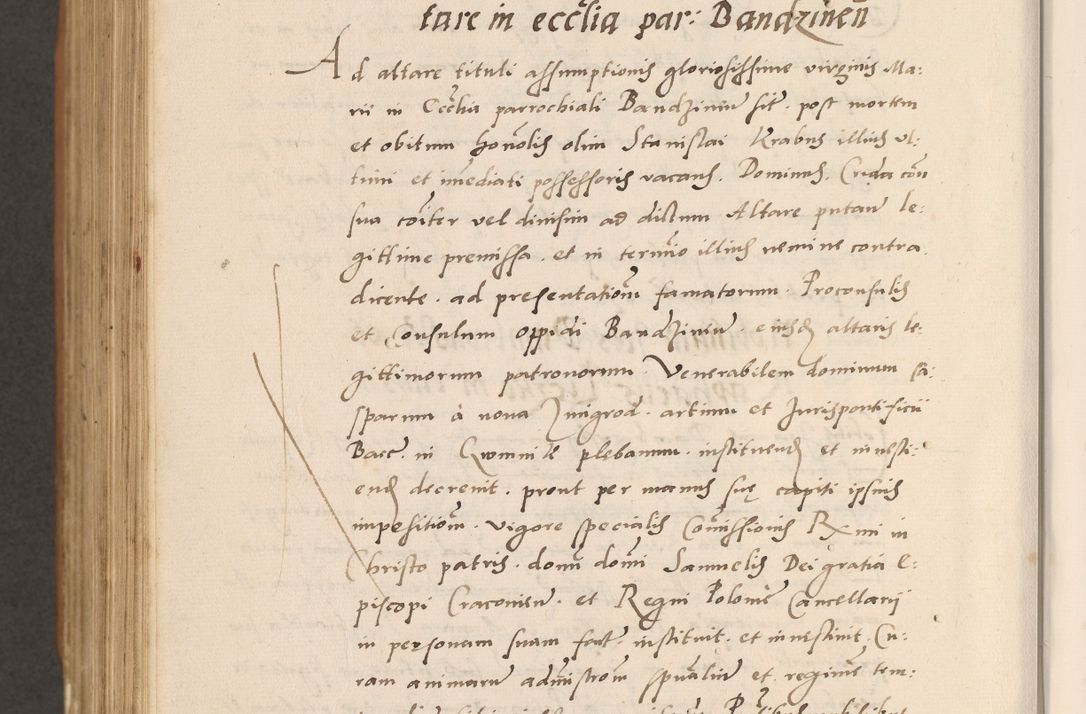 tare in eccľia par: Bandzinen̄
Ad altare tituli assumptionis gloriosissime virginis Ma:
rii in Eccľia parrochiali Bandzinien̄ sit̄. post mortem
et obitum honoľis olim Stanislai Krabus illius ul:
timi et im̄ediati possessoris vacans. Dominus. Crida coīi
sua coīter vel divisim ad dictum Altare putan̄ le:
gittime premissa. et in termīo illius nemine contra
dicente. ad presentationē famatorum. Proconsulis
et Consulum oppidi Bandzinien̄. eiusdē altaris le:
gittimorum patronorum. Venerabilem dominum
sparum a nova Zmigrod. artium et Jurispontificii
Bacc̄. in plebanum. instituend̄ et investi:
end̄ decrevit. prout per manus suę capiti ipsius
impositionē. vigore specialis Com̄issionis Rx̄mi in
Christo patris. domī domī Samuelis Dei gratia E:
piscopi Cracovien̄. et Regni Polonię Cancellarii
in personam suam fact̄. instituit. et investivit. Cu:
ram animarum adm̄istrōm sp̄ualiū et regimē tem: